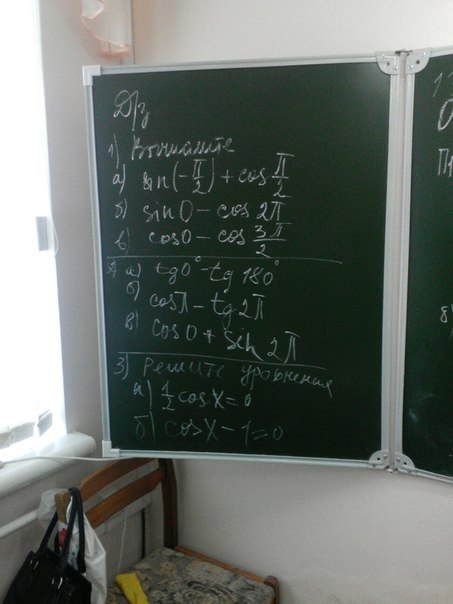 Д/з
1) Вычислите
а) sin(-π/2) + cos π/2
б) sin0 - cos 2π
в) cos0 - cos 3π/2
2) а) tg0° - tg 180°
б) cosπ - tg 2π
в) cos0 + sin 2π
3) Решите уравнения
а) 1/2 cosx = 0
б) cosx - 1 = 0